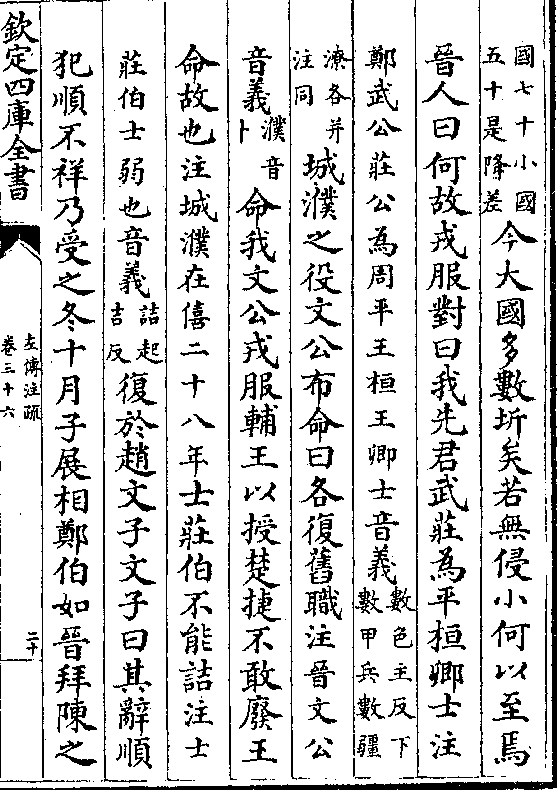 國七十小國
五十是降差
今大國多數圻矣若無侵小何以至焉
晉人曰何故戎服對曰我先君武莊為平桓卿士注
鄭武公莊公為周平王桓王卿士音義
數色主反下
數甲兵數疆
潦各并
注同
城濮之役文公布命曰各復舊職注晉文公
音義
濮音
卜
命我文公戎服輔王以授楚捷不敢廢王
命故也注城濮在僖二十八年士莊伯不能詰注士
莊伯士弱也音義
詰起
吉反
復於趙文子文子曰其辭順
犯順不祥乃受之冬十月子展相鄭伯如晉拜陳之
欽定四庫全書
左傳注疏
卷三十六
二十